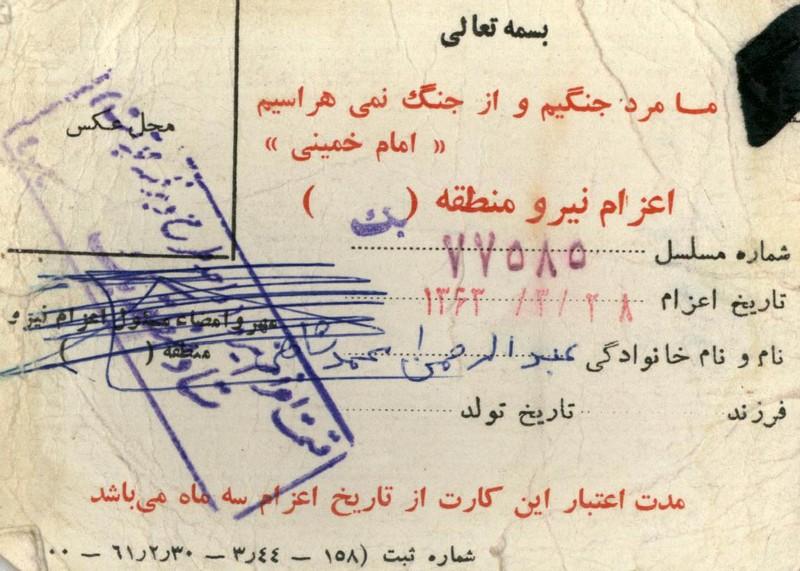 بسمه تعالی
ما مرد جنگیم و از جنگ نمی هراسیم
« امام خمینی »
محل عکس
اعزام نیرو منطقه ( یک )
شماره مسلسل ۷۷۵۸۵
تاریخ اعزام ۲۸ /۳/ ۱۳۶۳
مهر و امضاء مسئول اعزام نیرو
منطقه ( )
نام و نام خانوادگی عبدالرحمن محمد
فرزند تاریخ تولد
مدت اعتبار این کارت از تاریخ اعزام سه ماه می‌باشد
شماره ثبت (۱۵۸ – ۳ر۴۴ – ۶۱ر۲ر۳۰ – ۰۰